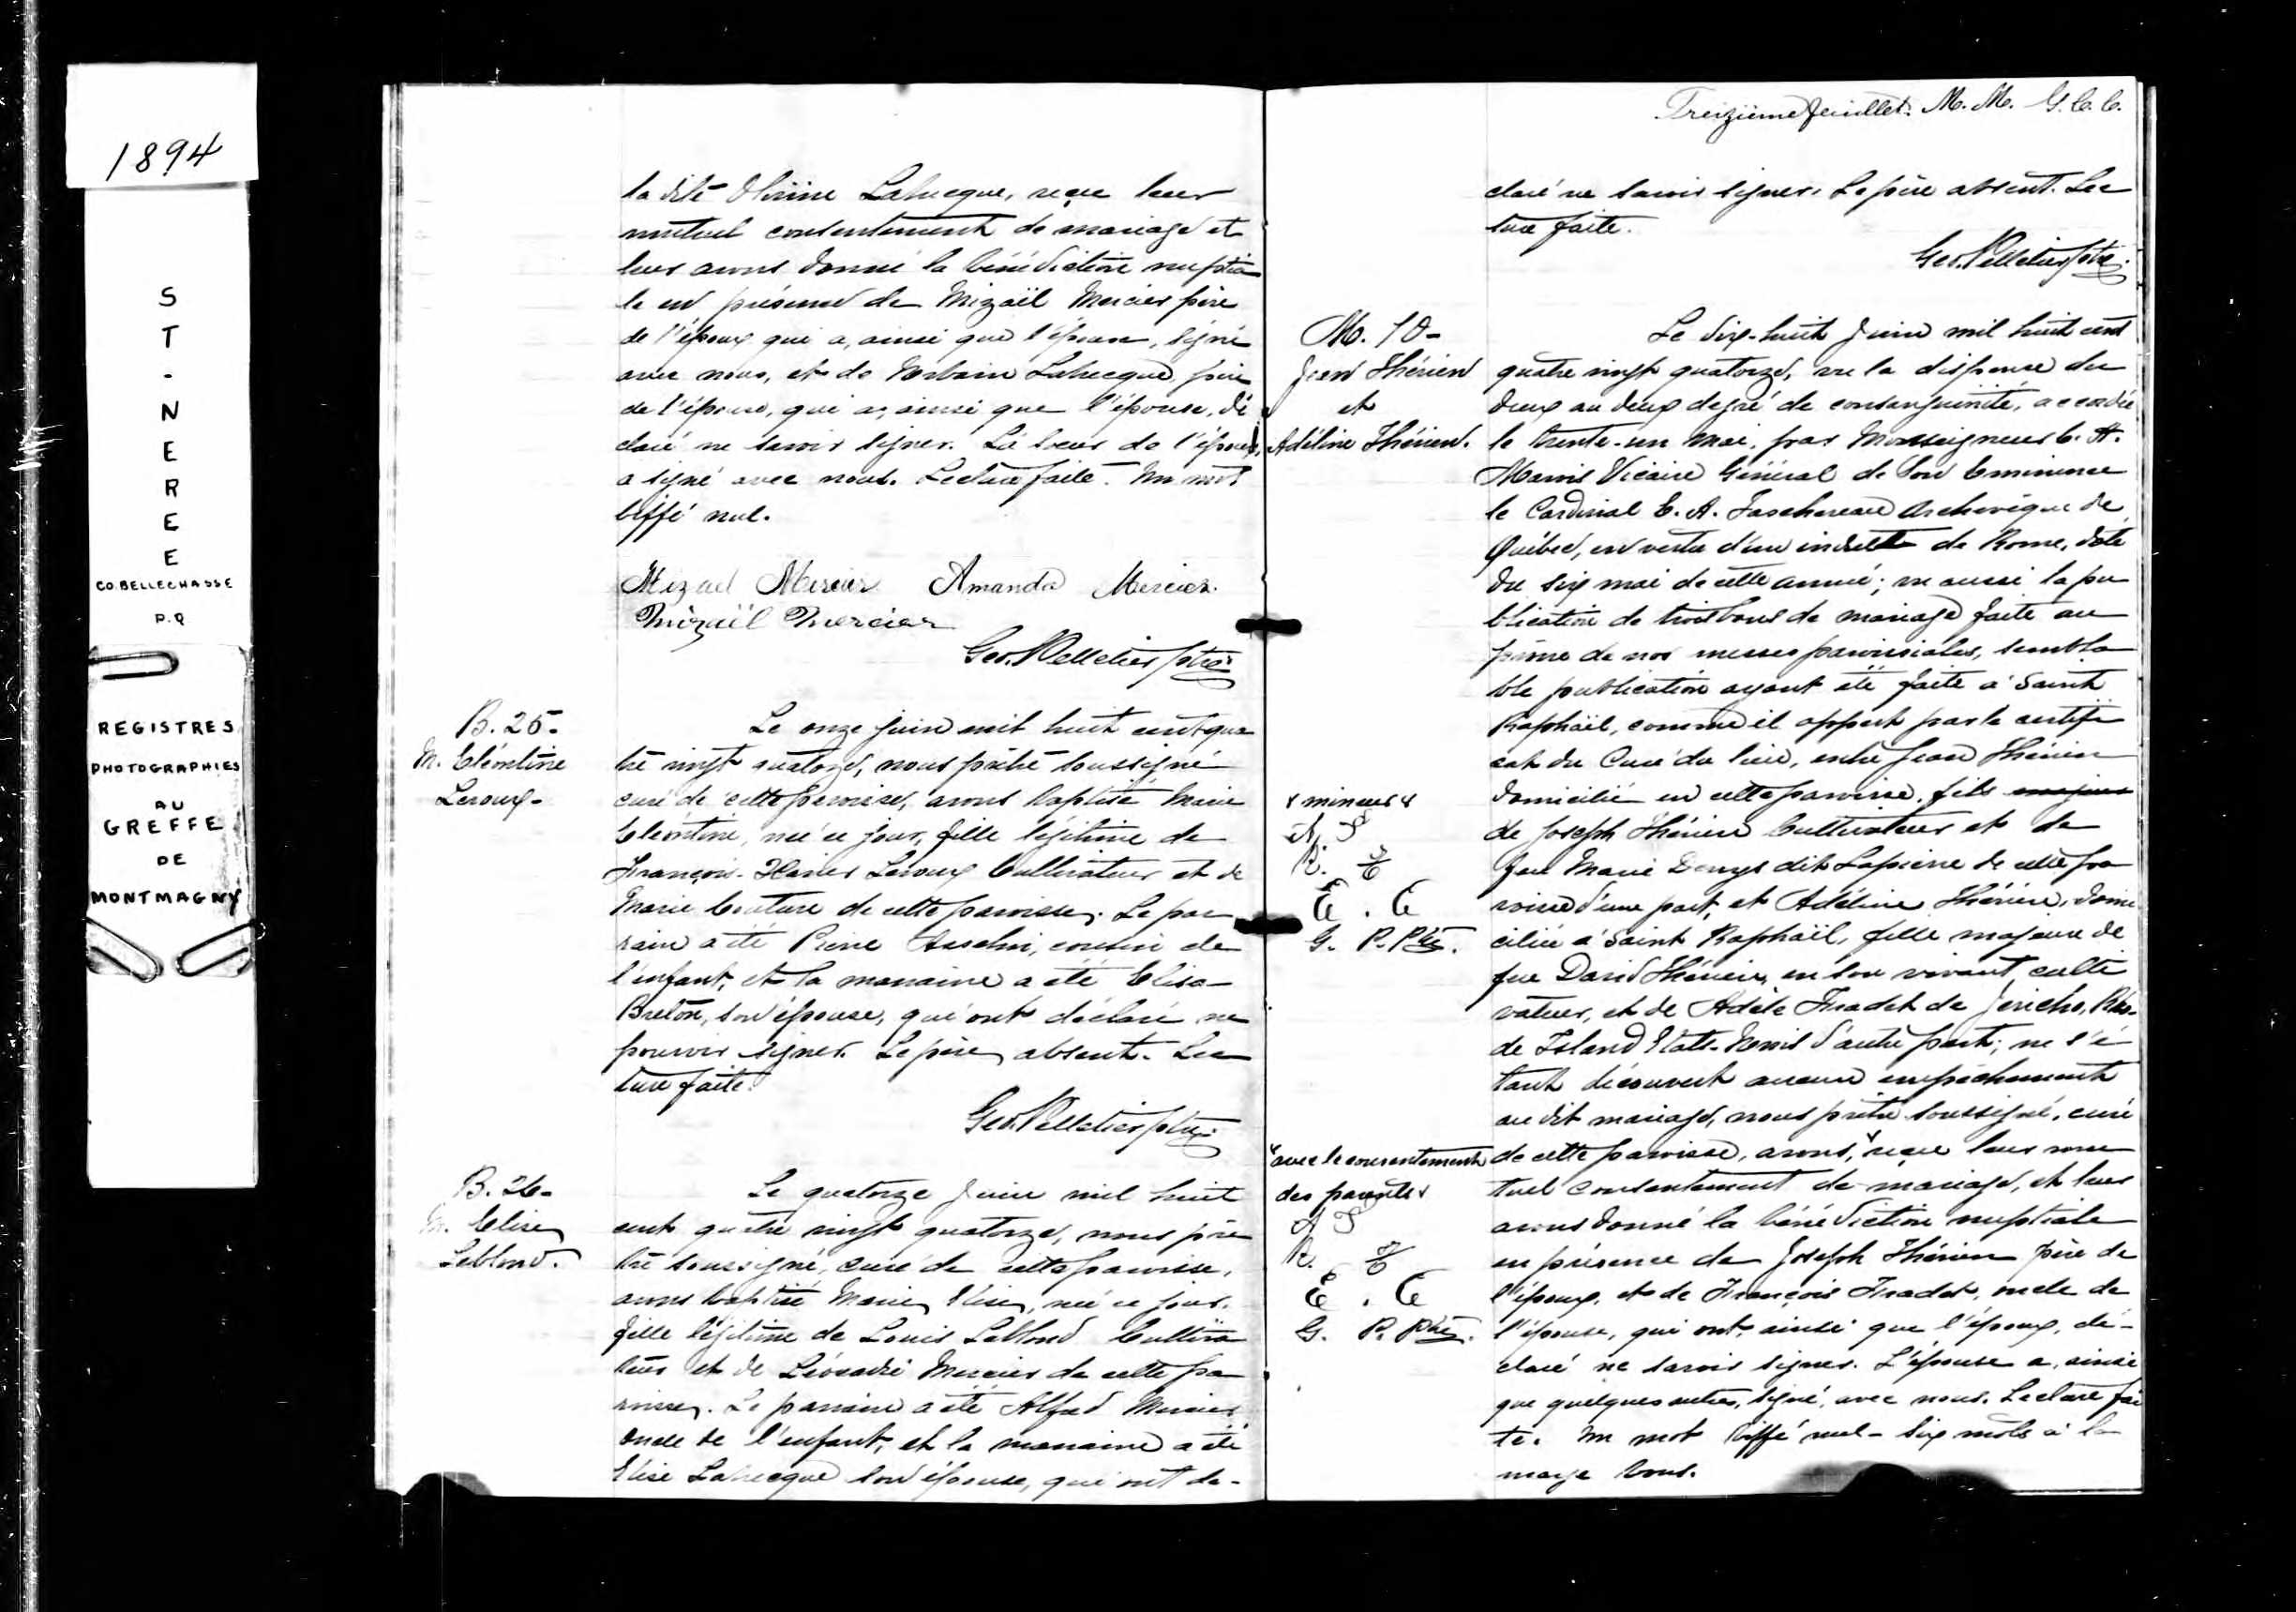 1894
S
T
-
N
E
R
E
E
CO. BELLECHASSE
P.Q
REGISTRES
PHOTOGRAPHIES
AU
GREFFE
DE
MONTMAGNY
la dite Labrecque, reçu leur
mutuel consentement de mariage et
leur avons donné la bénédiction nuptia
le en présence de Mizaël Mercier père
de l'époux qui a, ainsi que l'époux, signé
avec nous, et de Labrecque père
de l'épouse, qui a, ainsi que l'épouse, dé
claré ne savoir signer. La soeur de l'époux,
a signé avec nous. Lecture faite. Un mot
biffé nul.
Mizael Mercier Amanda Mercier.
Mizaël Mercier
Geo. Pelletier Ptre
B. 25-
M. Cléontine
Leroux-
Le onze juin mil huit cent qua
tre vingt quatorze, nous prêtre soussigné
curé de cette paroisse, avons baptisé Marie
Cléontine, née ce jour, fille légitime de
François-Xavier Leroux Cultivateur et de
Marie Couture de cette paroisse. Le par
rain a été Pierre Asselin, cousin de
l'enfant, et la marraine a été Elisa
Breton, son épouse, qui ont déclaré ne
pouvoir signer. Le père absent. Lec
ture faite.
Geo. Pelletier Ptre
B. 26-
M. Elise
Leblond.
Le quatorze juin mil huit
cent quatre vingt quatorze, nous prê
tre soussigné, curé de cette paroisse,
avons baptisé Marie Elise, née ce jour,
fille légitime de Louis Leblond Cultiva
teur et de Léocadie Mercier de cette pa
roisse. Le parrain a été Alfred Mercier
oncle de l'enfant, et la marraine a été
Elise Labrecque son épouse, qui ont dé-
Treizième feuillet. M. M. G. C. C.
claré ne savoir signer. Le père absent. Lec
ture faite.
Geo. Pelletier Ptre
M. 10-
Jean Thérien
et
Adéline Thérien.
Le dix-huit Juin mil huit cent
quatre vingt quatorze, vu la dispense du
deux au deux degré de consanguinité, accordée
le trente-un mai, par Monseigneur C. A.
Marois Vicaire Général de Son Eminence
le Cardinal E. A. Taschereau Archevêque de
Québec, en vertu d'un indult de Rome, daté
du six mai de cette année; vu aussi la pu
blication de trois bans de mariage faite au
prône de nos messes paroissiales, sembla
ble publication ayant été faite à Saint
Raphaël, comme il appert par le certifi
cat du Curé du lieu, entre Jean Thérien
domicilié en cette paroisse, fils majeur
x mineur x
A. T
R. T
E. C
G. P. Ptre.
de Joseph Thérien Cultivateur et de
feue Marie Denys dit Lapierre de cette pa
roisse d'une part, et Adéline Thérien, domi
ciliée à Saint Raphaël, fille majeure de
feu David Thérien, en son vivant, culti
vateur, et de Adèle Fradet de Jericho, Rho-
de Island Etats-Unis d'autre part; ne s'é
tant découvert aucun empêchement
au dit mariage, nous prêtre soussigné, curé
de cette paroisse, avons, x reçu leur mu
x avec le consentement
des parents x
A T
R. T
E. C
G. P. Ptre.
tuel consentement de mariage, et leur
avons donné la bénédiction nuptiale
en présence de Joseph Thérien père de
l'époux, et de François Fradet, oncle de
l'épouse, qui ont, ainsi que l'époux, dé-
claré ne savoir signer. L'épouse a, ainsi
que quelques autres, signé, avec nous. Lecture fai
te. Un mot biffé nul - Six mots à la
marge bons.